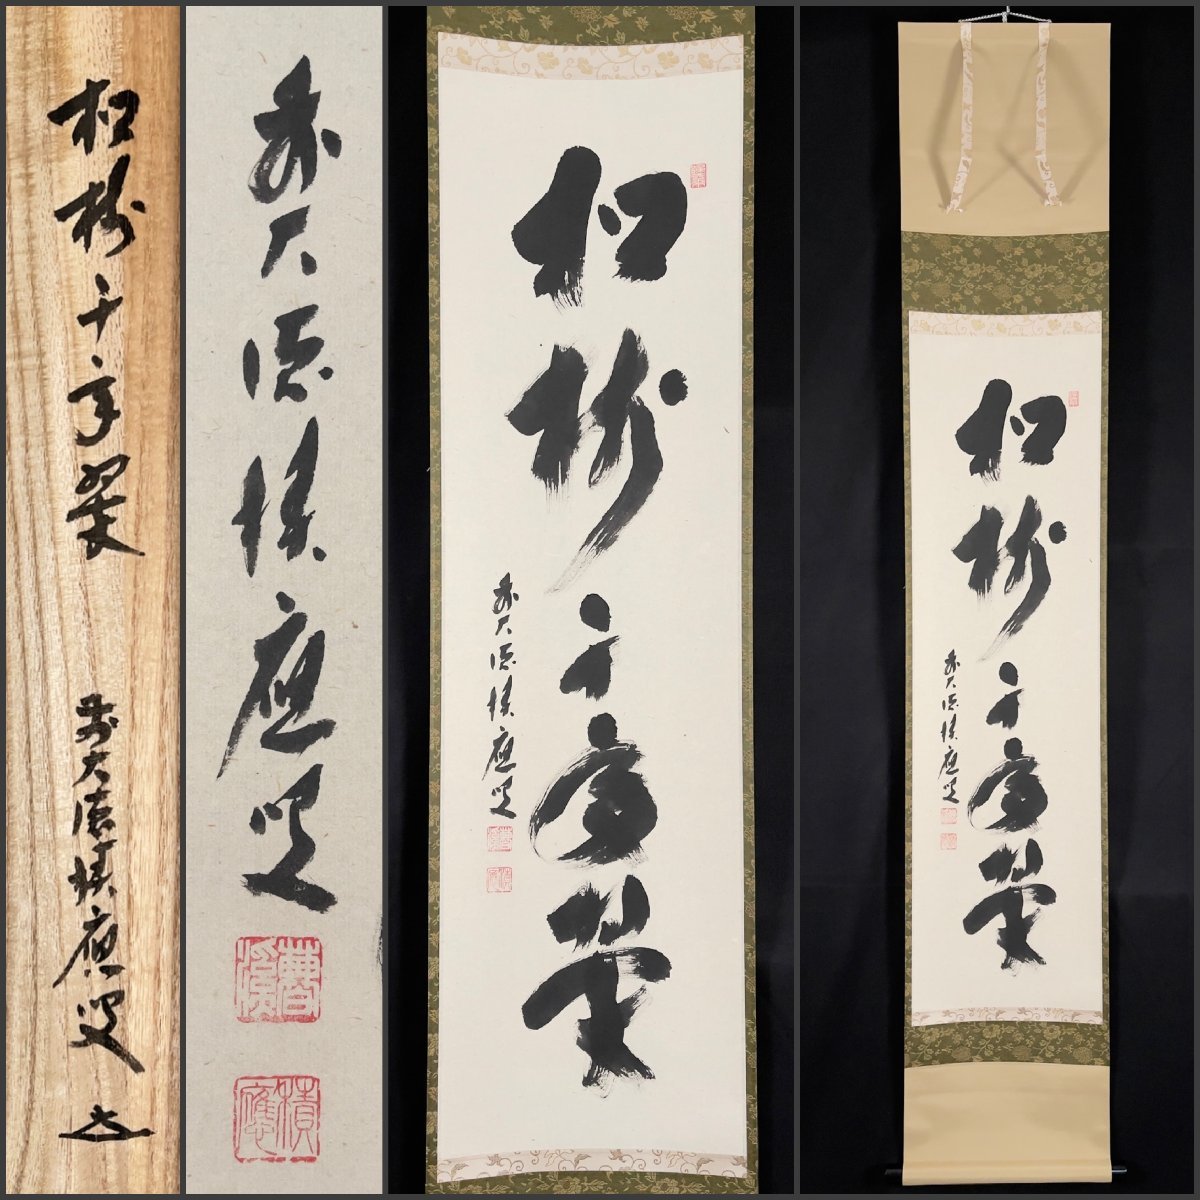 松樹千年翠
前大徳積應叟
前大徳積應叟
積應
松樹千年翠
前大徳積應叟
積應
松樹千年翠
前大徳積應叟